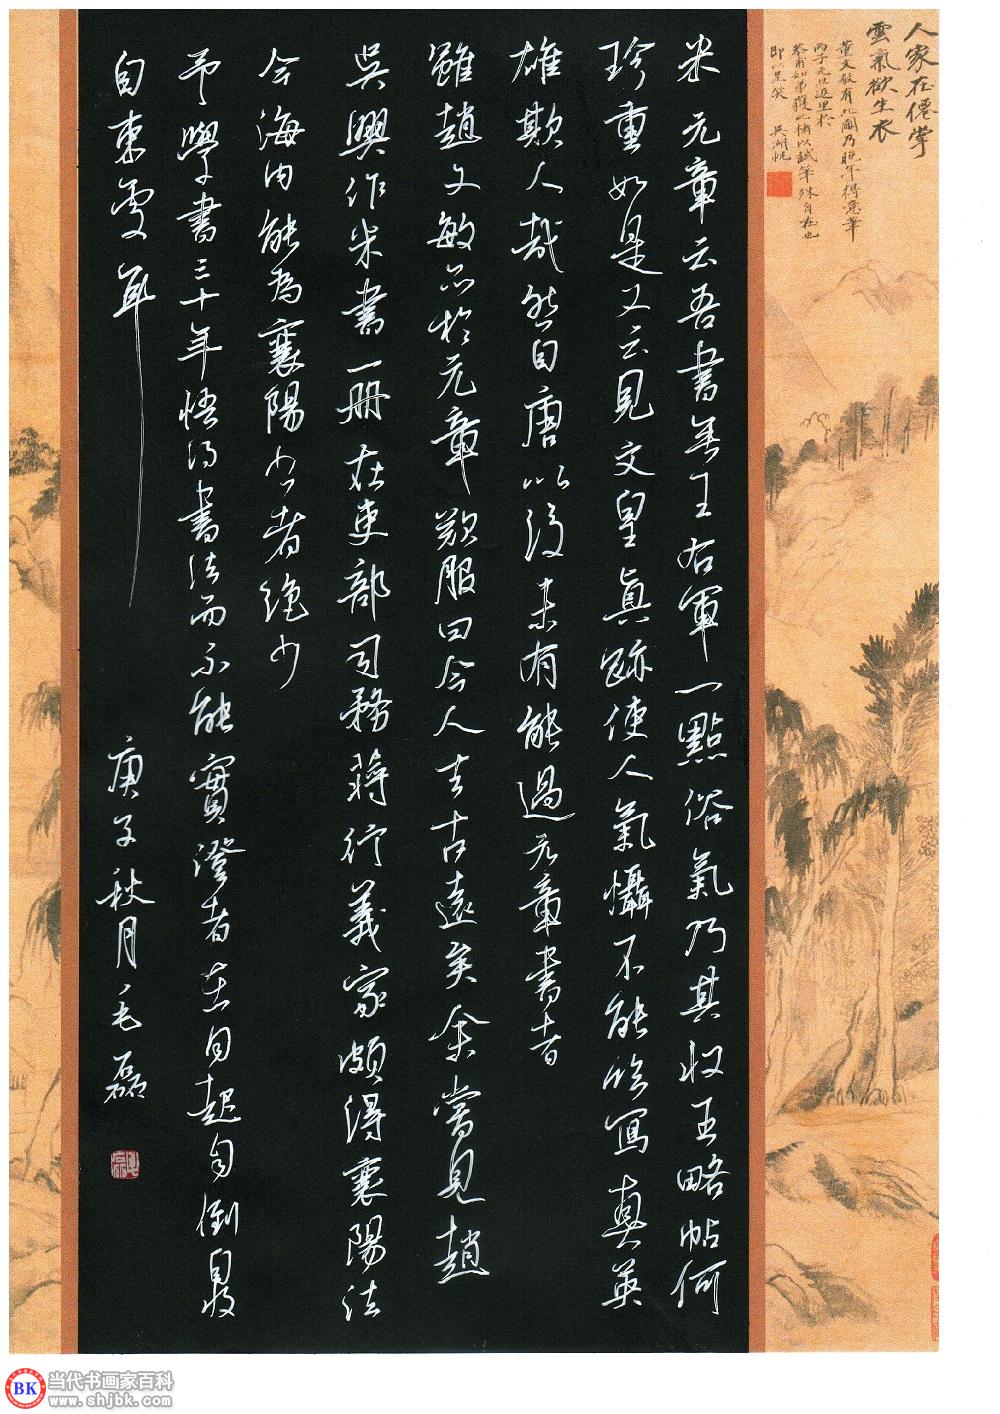 人家在僊掌
雲氣欲生衣
董文敏有此圖乃晚年得意筆
丙子元旦返里於
即以呈笑 吳湖帆
米元章云吾書無王右軍一點俗氣乃其收王略帖何
珍重如是又云見文皇真跡使人氣懾不能臨寫真英
雄欺人哉然自唐以後未有能過元章書者
雖趙文敏亦於元章歎服曰今人去古遠矣余嘗見趙
吳興作米書一册在吏部司務蔣行義家頗得襄陽法
今海内能為襄陽書者絶少
予學書三十年悟得書法而不能實證者在自起自倒自收
自束處耳
庚子秋月毛磊
BK 当代书画家百科
www.shjbk.com